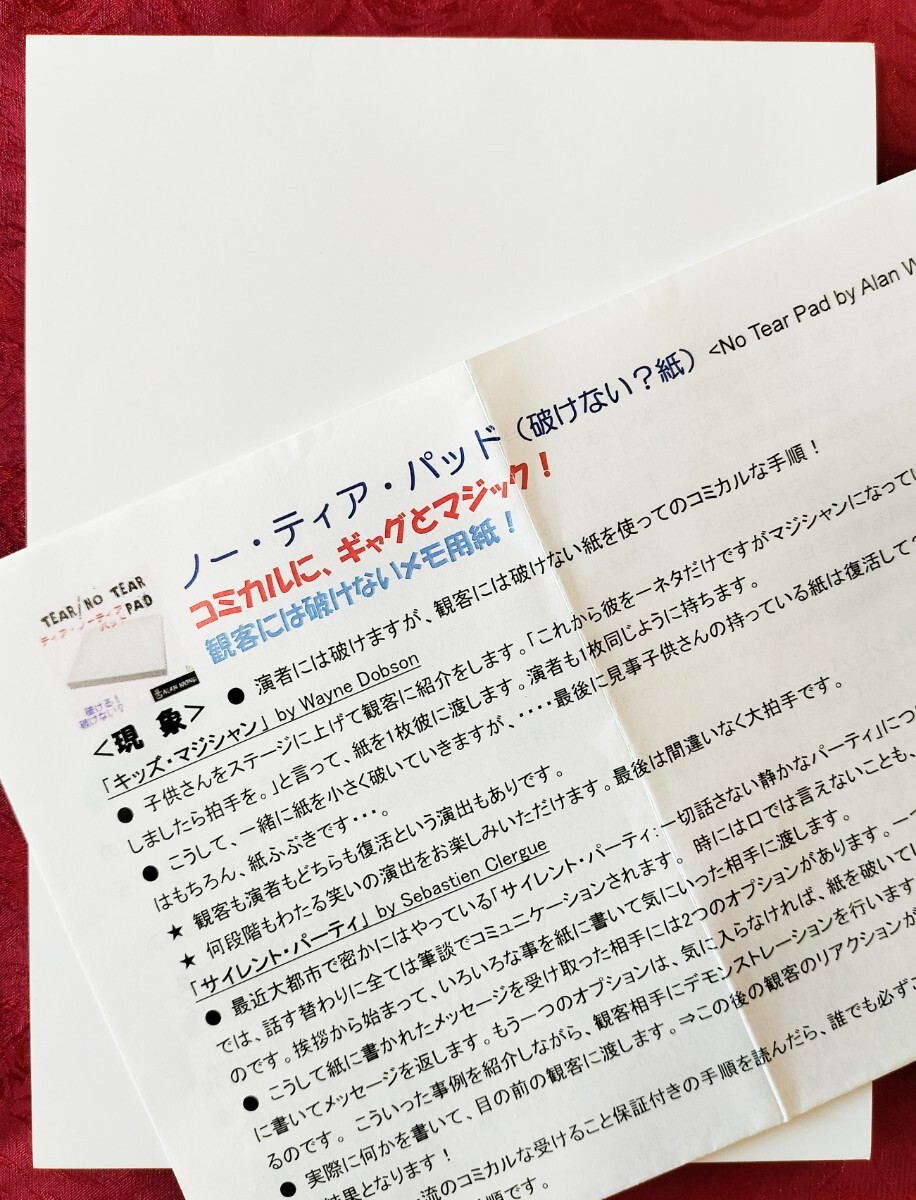 ノー・ティア・パッド（破けない？紙）<No Tear Pad by Alan W
コミカルに、ギャグとマジック！
観客には破けないメモ用紙！
TEAR/NO TEAR
PAD
ティア・ノーティア
パッド
ALAN WONG
破ける！
破けない？
● 演者には破けますが、観客には破けない紙を使ってのコミカルな手順！
<現 象>
「キッズ・マジシャン」by Wayne Dobson
● 子供さんをステージに上げて観客に紹介をします。「これから彼を一ネタだけですがマジシャンになってい
しましたら拍手を。」と言って、紙を1枚彼に渡します。演者も1枚同じように持ちます。
● こうして、一緒に紙を小さく破いていきますが、・・・・最後に見事子供さんの持っている紙は復活して
はもちろん、紙ふぶきです・・・。
★ 観客も演者もどちらも復活という演出もありです。
★ 何段階もわたる笑いの演出をお楽しみいただけます。最後は間違いなく大拍手です。
「サイレント・パーティ」by Sebastien Clergue
● 最近大都市で密かにはやっている「サイレント・パーティ:一切話さない静かなパーティ」につ
では、話す替わりに全ては筆談でコミュニケーションされます。時には口では言えないことも、
のです。挨拶から始まって、いろいろな事を紙に書いて気にいった相手に渡します。
● こうして紙に書かれたメッセージを受け取った相手には2つのオプションがあります。一
に書いてメッセージを返します。もう一つのオプションは、気に入らなければ、紙を破いて
るのです。こういった事例を紹介しながら、観客相手にデモンストレーションを行います
● 実際に何かを書いて、目の前の観客に渡します。⇒この後の観客のリアクションが
結果となります！
流のコミカルな受けること保証付きの手順を読んだら、誰でも必ず
順です。